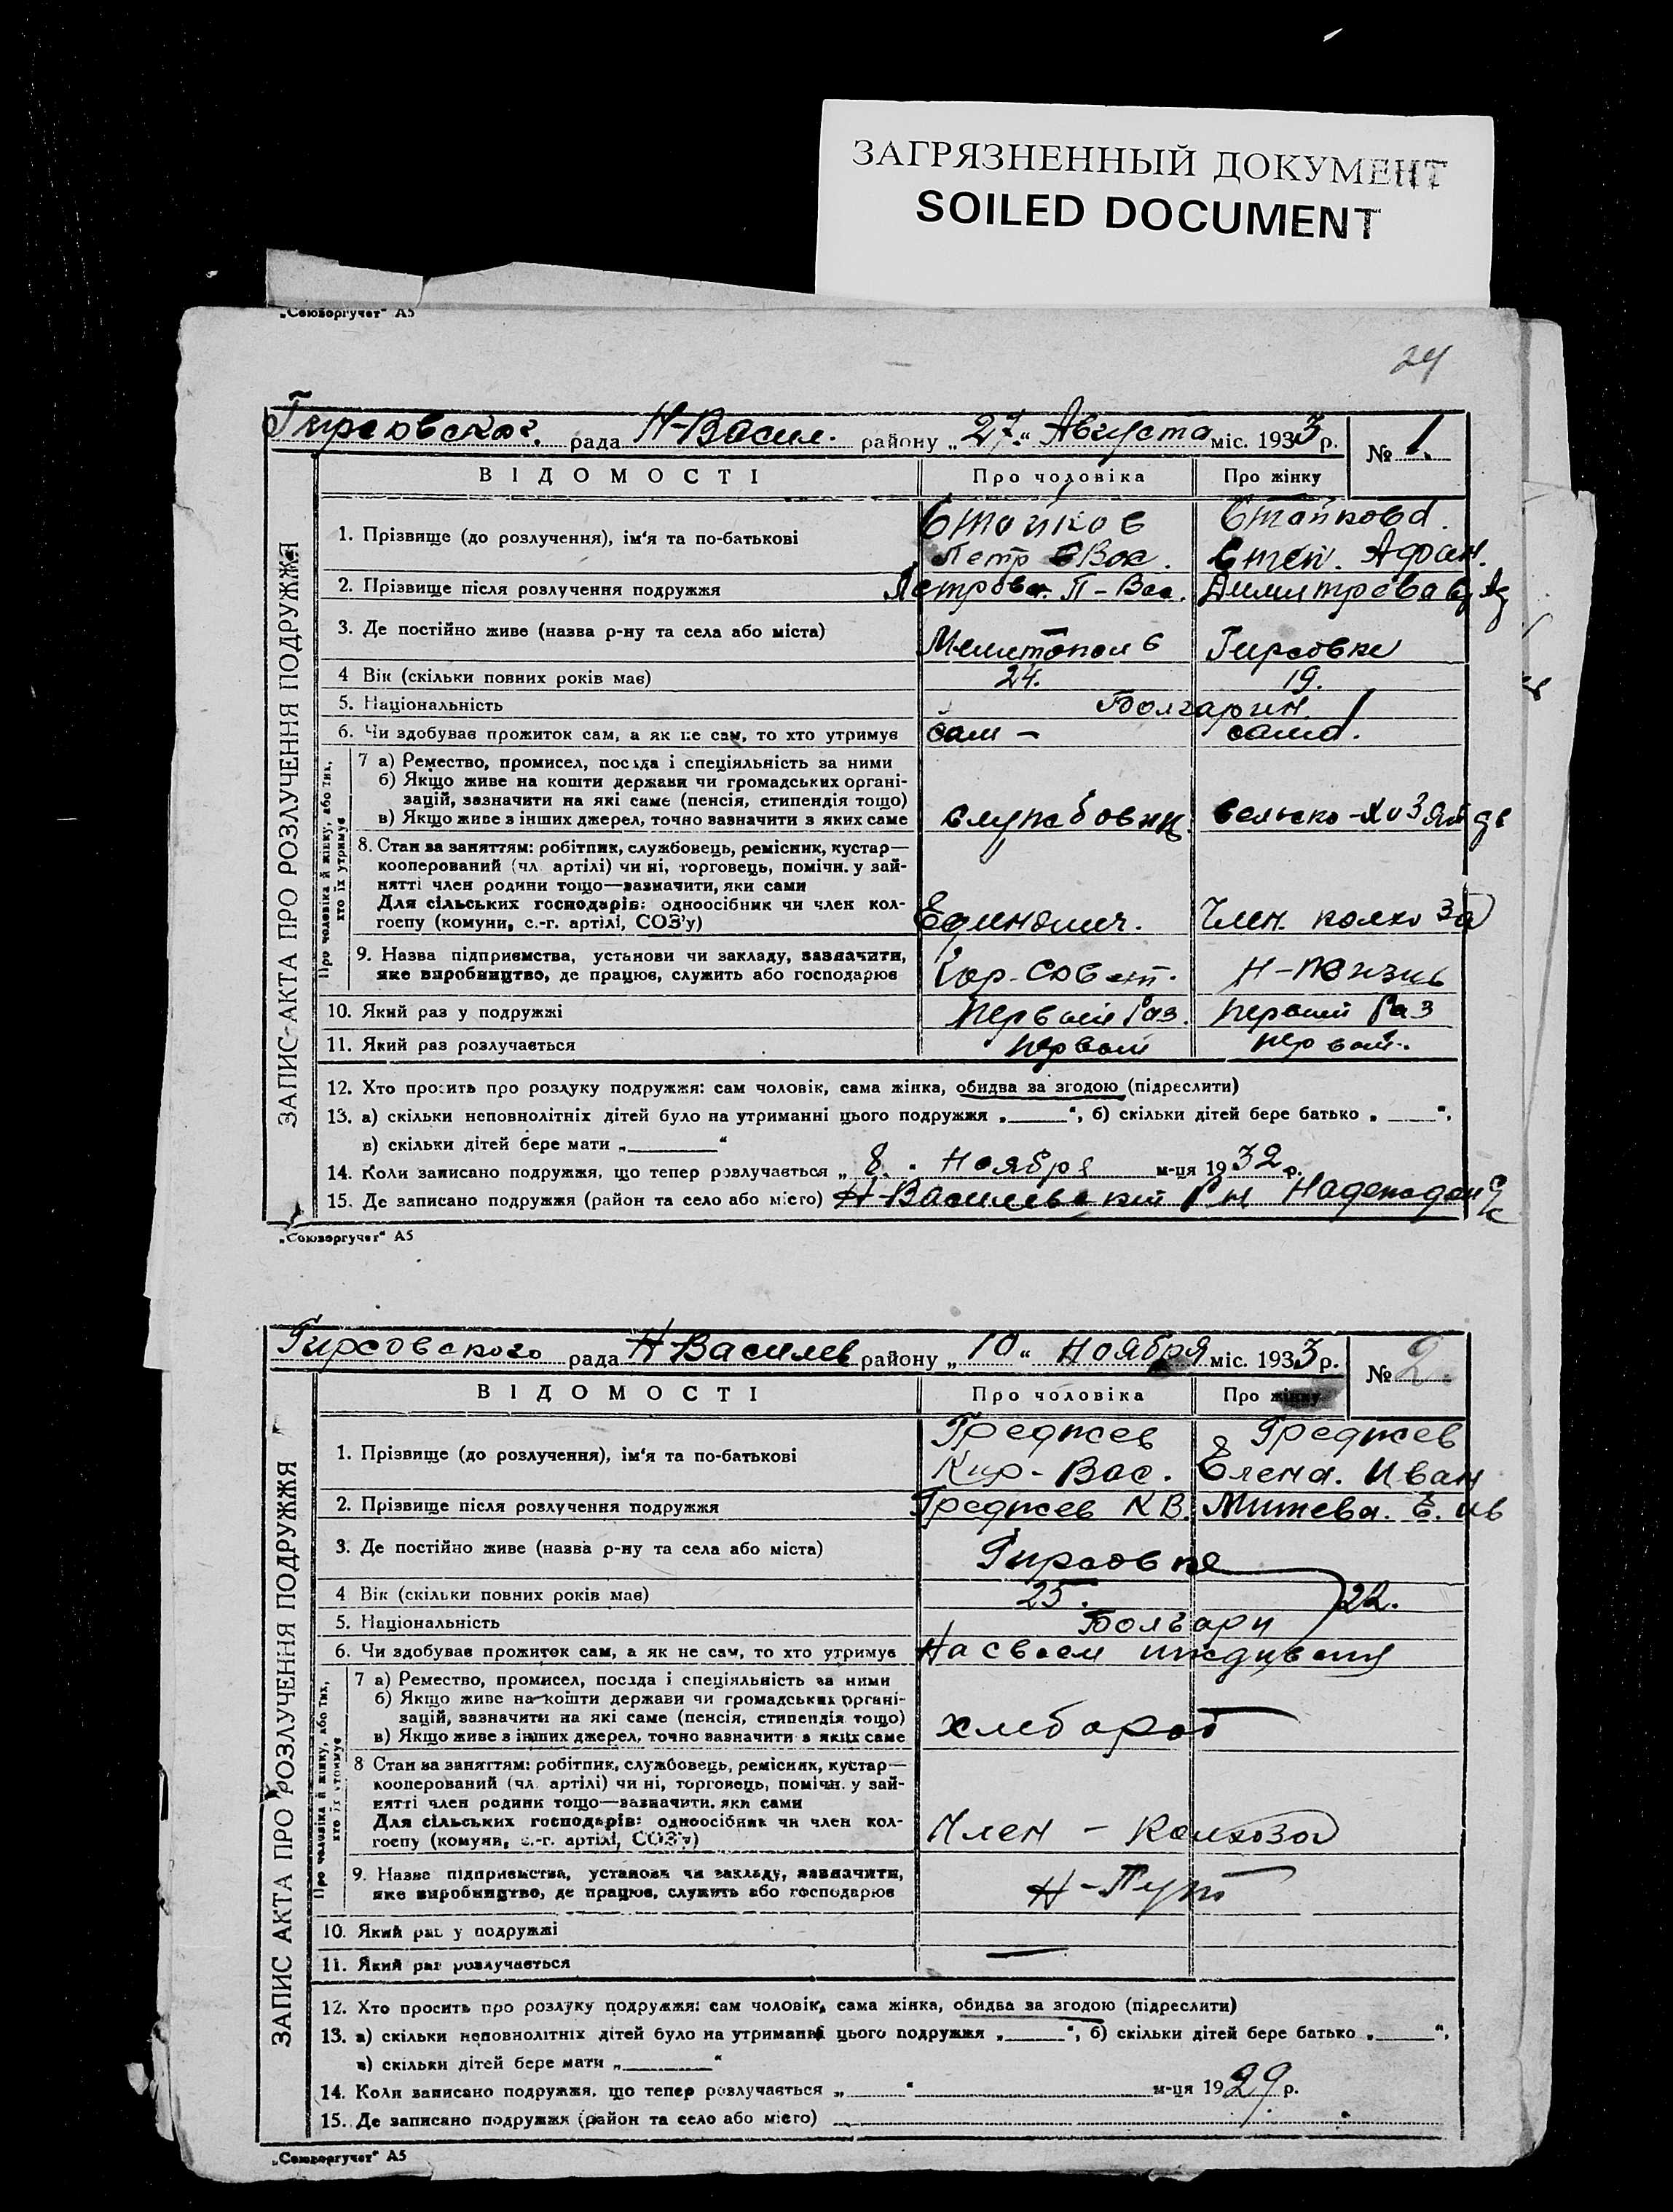 ЗАГРЯЗНЕННЫЙ ДОКУМЕНТ
SOILED DOCUMENT
„Союзоргучет" А5
24
Гирсовског. рада Н-Васил. району „27" Августа міс. 1933 р. № 1.
ВІДОМОСТІ Про чоловіка Про жінку
ЗАПИС АКТА ПРО РОЗЛУЧЕННЯ ПОДРУЖЖЯ
Стойков Стайкова.
1. Прізвище (до розлучення), ім'я та по-батькові
Петр Вас. Степ. Афан.
2. Прізвище після розлучення подружжя Петров П-Вас. Димитрова
3. Де постійно живе (назва р-ну та села або міста) Мелитополь Гирсовка
4 Вік (скільки повних років має) 24. 19.
5. Національність Болгарин.
6. Чи здобував прожиток сам, а як не сам, то хто утримує сам - сама.
Про чоловіка й жінку, або тих, хто їх утримує
7 а) Ремество, промисел, посада і спеціяльність за ними
б) Якщо живе на кошти держави чи громадських органі-
зацій, зазначити на які саме (пенсія, стипендія тощо)
в) Якщо живе з інших джерел, точно зазначити з яких саме службовиц.
8. Стан за заняттям: робітник, службовець, ремісник, кустар—
кооперований (чл. артілі) чи ні, торговець, помічн. у зай-
нятті член родини тощо—зазначити, яки сами
Для сільських господарів: одноосібник чи член кол-
госпу (комуни, с.-г. артілі, СОЗ'у) Единолич. Член. колхоза
9. Назва підприємства, установи чи закладу, зазначити,
яке виробництво, де працює, служить або господарює Гор-Совет. Н-Жизнь
10. Який раз у подружжі первый раз. первый раз
11. Який раз розлучається первый первый.
12. Хто просить про розлуку подружжя: сам чоловік, сама жінка, обидва за згодою (підреслити)
13. а) скільки неповнолітніх дітей було на утриманні цього подружжя „____", б) скільки дітей бере батько „____",
в) скільки дітей бере мати „____"
14. Коли записано подружжя, що тепер розлучається „8." Ноября м-ця 1932 р.
15. Де записано подружжя (район та село або місто) Н-Васильевский Р-н
„Союзоргучет" А5
Гирсовского рада Н-Василев району „10" Ноября міс. 1933 р. № 2.
ВІДОМОСТІ Про чоловіка Про жінку
ЗАПИС АКТА ПРО РОЗЛУЧЕННЯ ПОДРУЖЖЯ
Греджев Греджев
1. Прізвище (до розлучення), ім'я та по-батькові
Кир-Вас. Елена. Иван
2. Прізвище після розлучення подружжя Греджев К В. Митева. Е. Ив
3. Де постійно живе (назва р-ну та села або міста) Гирсовка
4 Вік (скільки повних років має) 25. 22.
5. Національність Болгари
6. Чи здобував прожиток сам, а як не сам, то хто утримує На своем иждивении
Про чоловіка й жінку, або тих, хто їх утримує
7 а) Ремество, промисел, посада і спеціяльність за ними
б) Якщо живе на кошти держави чи громадських органі-
зацій, зазначити на які саме (пенсія, стипендія тощо)
в) Якщо живе з інших джерел, точно зазначити з яких саме хлебороб
8 Стан за заняттям: робітник, службовець, ремісник, кустар—
кооперований (чл. артілі) чи ні, торговець, помічн. у зай-
нятті член родини тощо—зазначити, яки сами
Для сільських господарів: одноосібник чи член кол-
госпу (комуни, с.-г. артілі, СОЗ'у) Член - колхоза
9. Назва підприємства, установи чи закладу, зазначити,
яке виробництво, де працює, служить або господарює Н-Путь
10. Який раз у подружжі
11. Який раз розлучається —
12. Хто просить про розлуку подружжя: сам чоловік, сама жінка, обидва за згодою (підреслити)
13. а) скільки неповнолітніх дітей було на утриманні цього подружжя „____", б) скільки дітей бере батько „____",
в) скільки дітей бере мати „____"
14. Коли записано подружжя, що тепер розлучається „____" ____ м-ця 1929 р.
15. Де записано подружжя (район та село або місто)
„Союзоргучет" А5